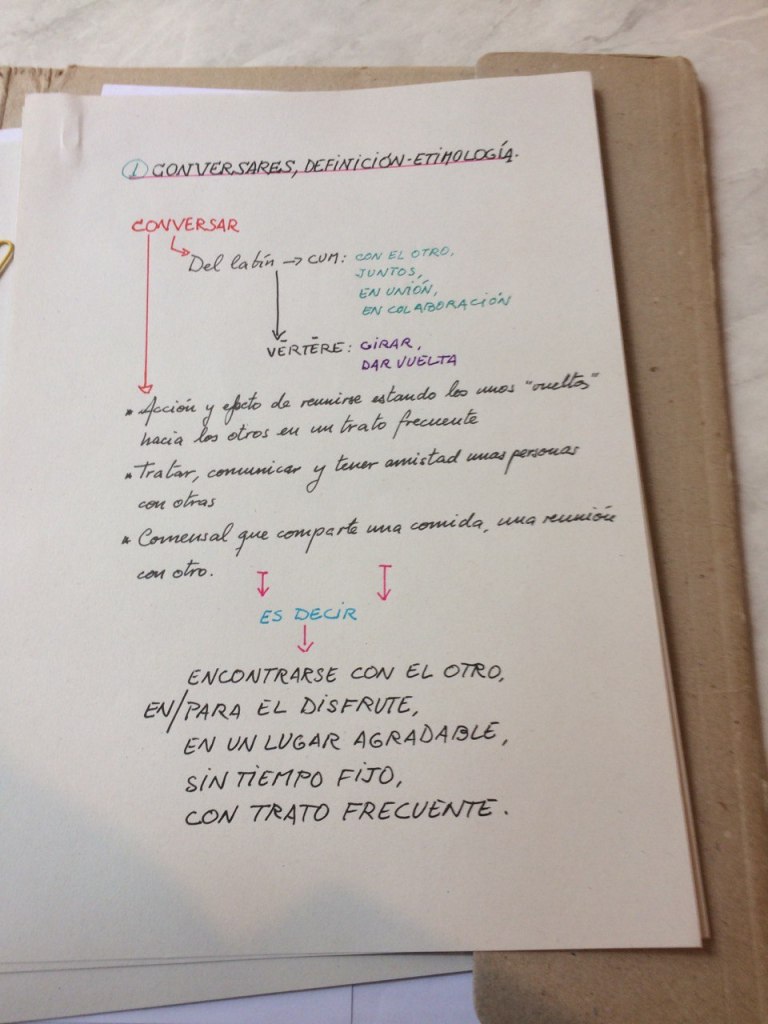 ① CONVERSARES, DEFINICIÓN-ETIMOLOGÍA.
CONVERSAR
Del latín → CUM: CON EL OTRO,
JUNTOS,
EN UNIÓN,
EN COLABORACIÓN
VĒRTĒRE: GIRAR,
DAR VUELTA
* Acción y efecto de reunirse estando los unos "vueltos"
hacia los otros en un trato frecuente
* Tratar, comunicar y tener amistad unas personas
con otras
* Comensal que comparte una comida, una reunión
con otro.
ES DECIR
ENCONTRARSE CON EL OTRO,
EN/PARA EL DISFRUTE,
EN UN LUGAR AGRADABLE,
SIN TIEMPO FIJO,
CON TRATO FRECUENTE.